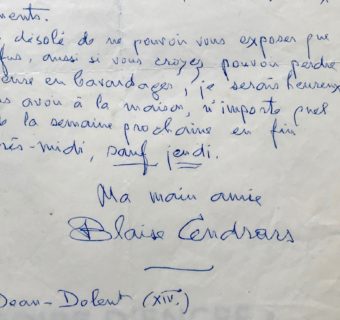 ments.
désolé de ne pouvoir vous exposer que
fus, aussi si vous croyez pouvoir perdre
heure en bavardages, je serais heureux
us avoir à la maison, n'importe quel
de la semaine prochaine en fin
rès-midi, sauf jeudi.
Ma main amie
Blaise Cendrars
Jean-Dolent (XIV.)